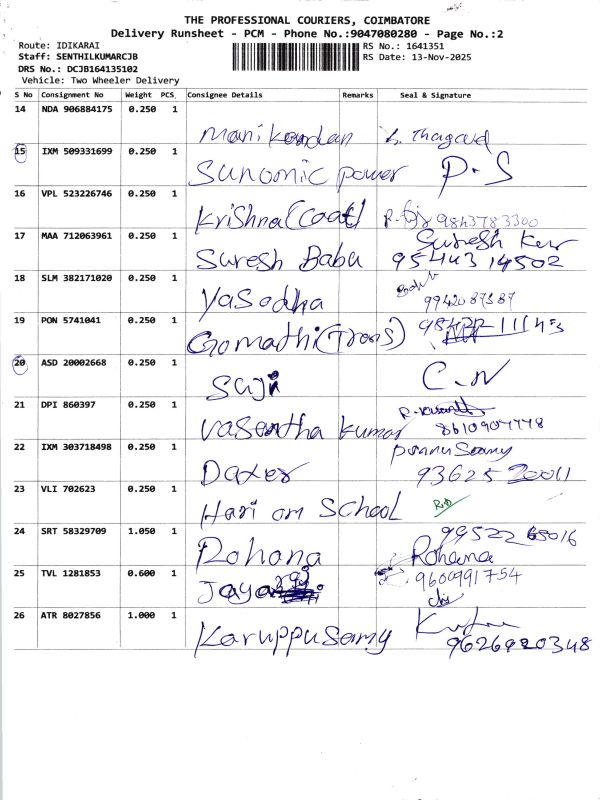 THE PROFESSIONAL COURIERS, COIMBATORE
Delivery Runsheet - PCM - Phone No.:9047080280 - Page No.:2
Route: IDIKARAI RS No.: 1641351
Staff: SENTHILKUMARCJB RS Date: 13-Nov-2025
DRS No.: DCJB164135102
Vehicle: Two Wheeler Delivery
S No Consignment No Weight PCS. Consignee Details Remarks Seal & Signature
14 NDA 906884175 0.250 1 Manikandan
15 IXM 509331699 0.250 1 Sunomic power P.S
16 VPL 523226746 0.250 1 Krishna (Coat) 9843783300
17 MAA 712063961 0.250 1 Suresh Babu Suresh
95443 14502
18 SLM 382171020 0.250 1 Yasodha
9942087387
19 PON 5741041 0.250 1 Gomathi (Trons)
20 ASD 20002668 0.250 1 Suji C.N
21 DPI 860397 0.250 1 Vasantha kumar
8610907778
22 IXM 303718498 0.250 1 Daxer Ponnusamy
93625 20011
23 VLI 702623 0.250 1 Hari om School
24 SRT 58329709 1.050 1 Rohana 99522 65016
Rohana
25 TVL 1281853 0.600 1 9600991754
26 ATR 8027856 1.000 1 Karuppusamy
9626920348